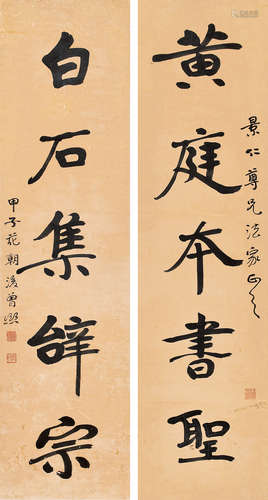 景仁尊兄法家正之
黄庭本書聖
白石集辞宗
甲子花朝後曾熙